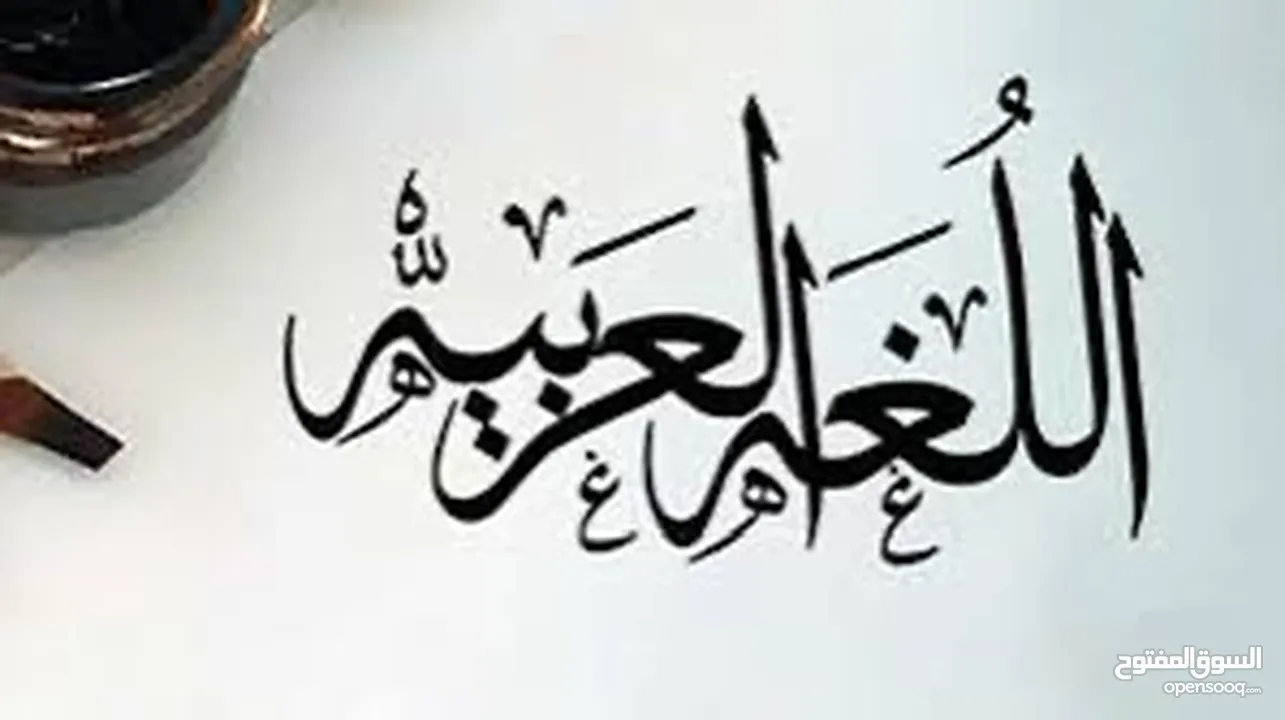 اللُغه العربيه
السوق المفتوح
opensooq.com